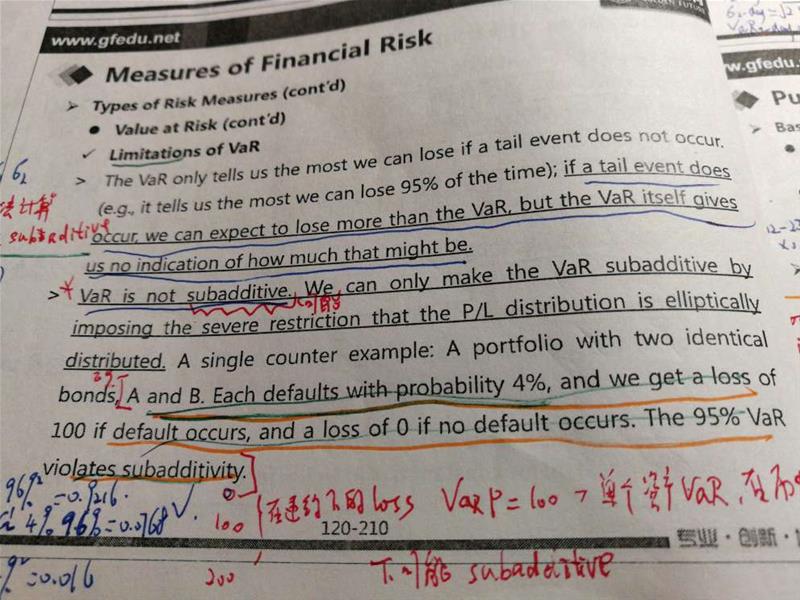 www.gfedu.net
Measures of Financial Risk
Types of Risk Measures (cont'd)
Value at Risk (cont'd)
Limitations of VaR
The VaR only tells us the most we can lose if a tail event does not occur.
(e.g., it tells us the most we can lose 95% of the time); if a tail event does
subadditive
occur, we can expect to lose more than the VaR, but the VaR itself gives
us no indication of how much that might be.
VaR is not subadditive. We can only make the VaR subadditive by
imposing the severe restriction that the P/L distribution is elliptically
distributed. A single counter example: A portfolio with two identical
bonds, A and B. Each defaults with probability 4%, and we get a loss of
100 if default occurs, and a loss of 0 if no default occurs. The 95% VaR
violates subadditivity.
96%² = 0.9216.
4% 96% = 0.0768
0
100
200
在违约下的loss
VaRp = 100 > 单个资产VaR,
120-210
专业·创新·
不可能 subadditive
w.gfedu.
Pu
Bas